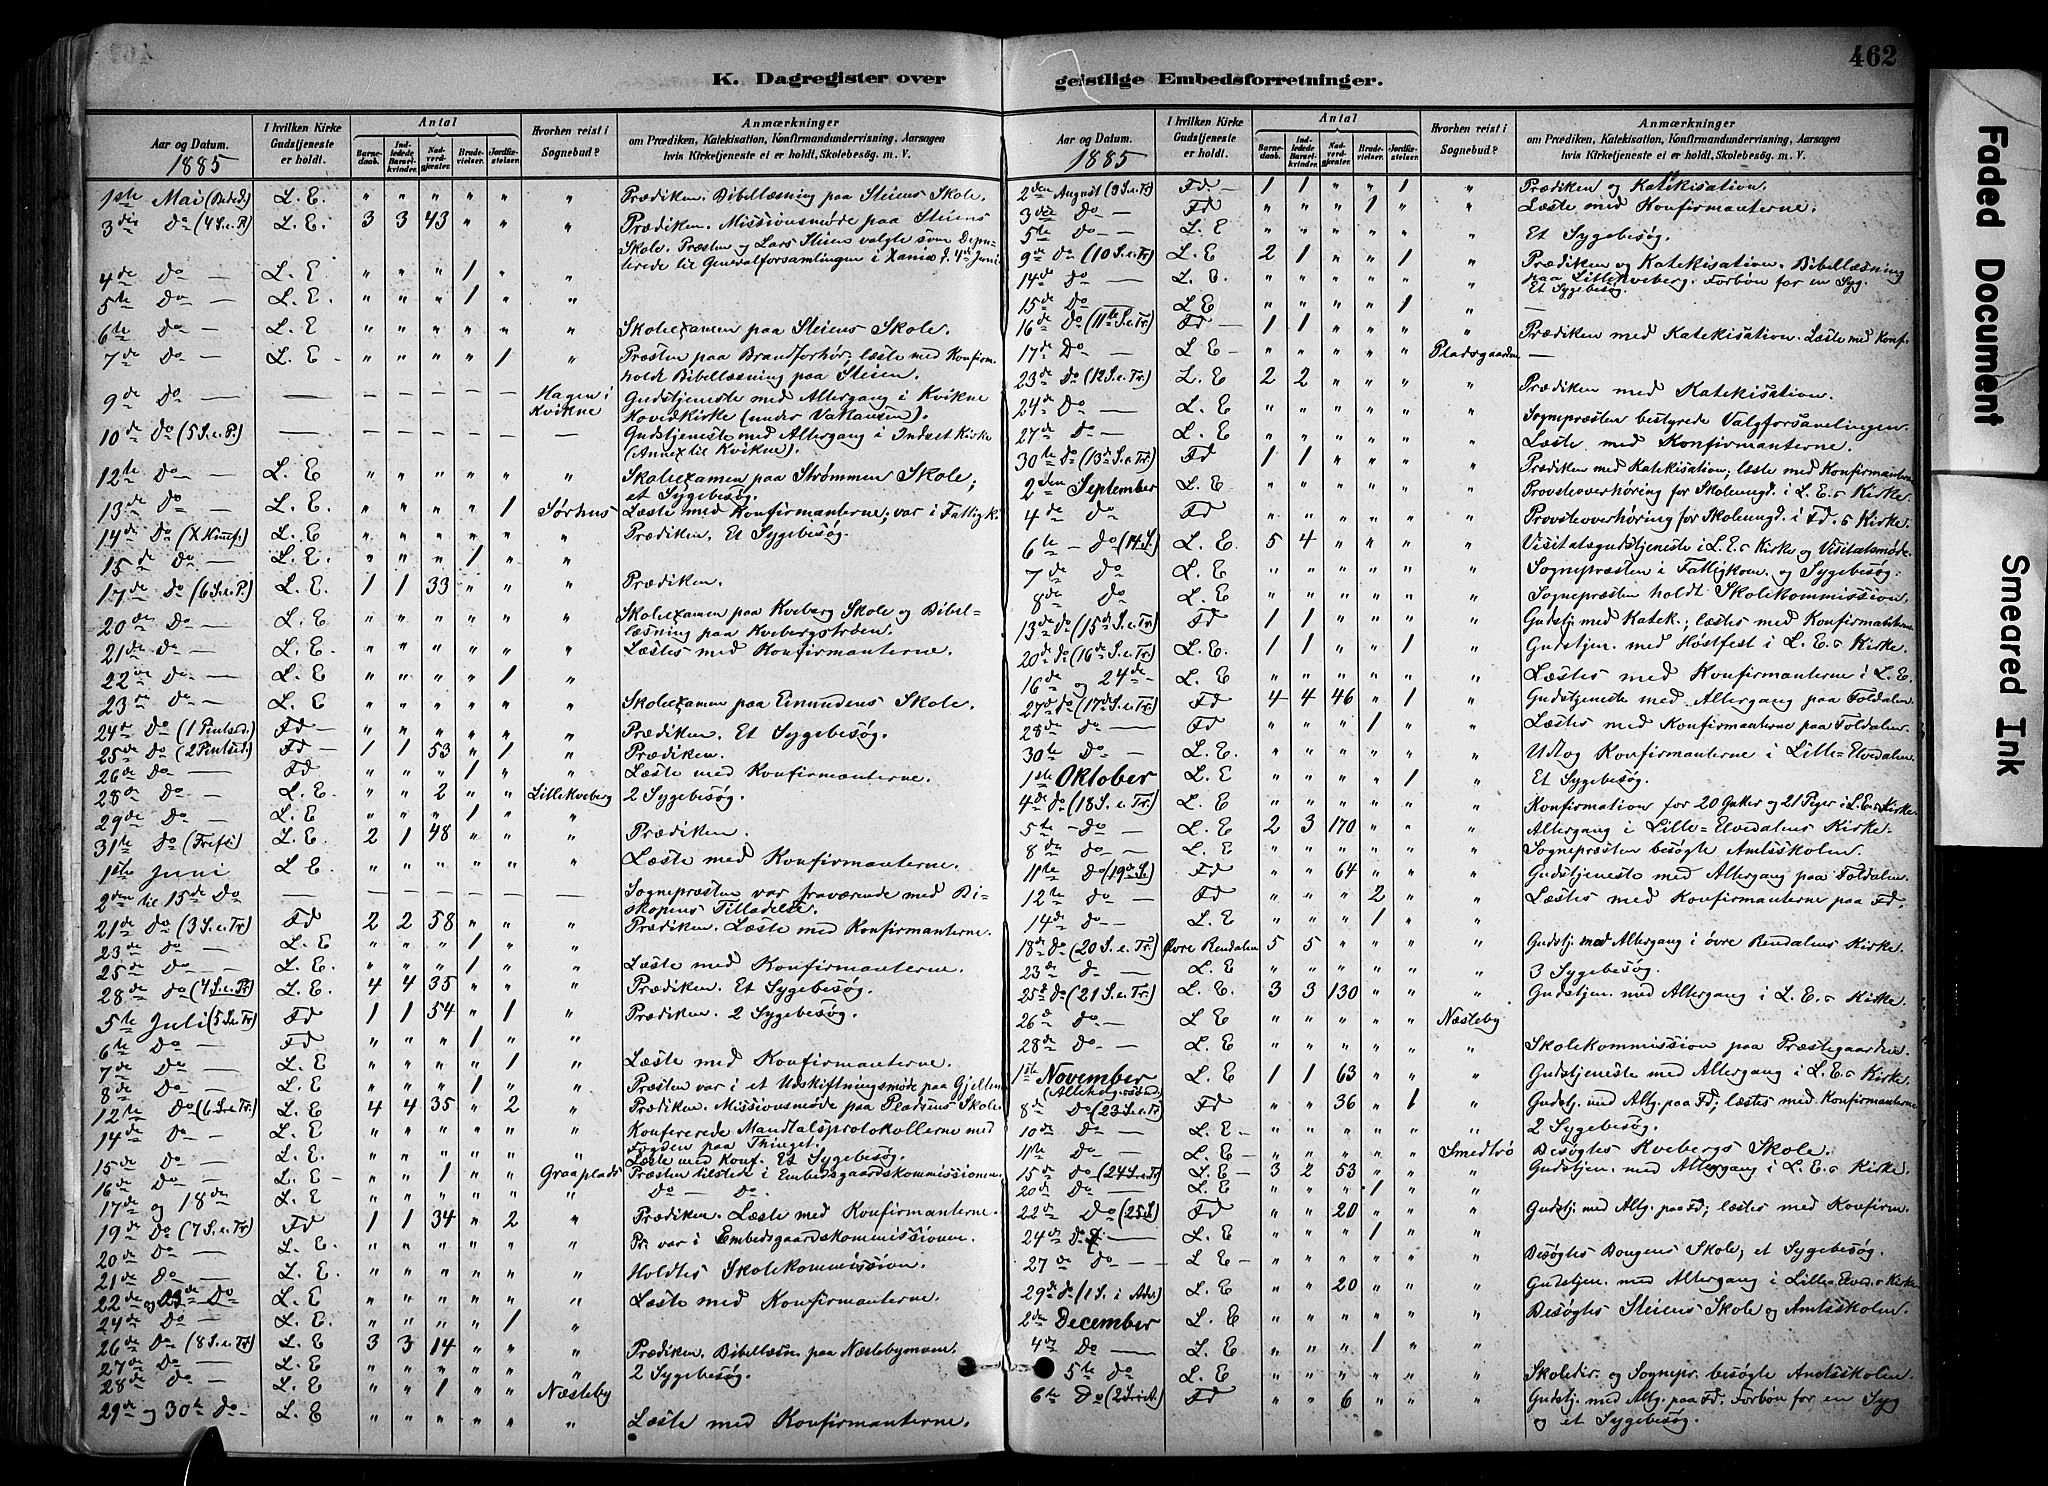 462
K. Dagregister over geistlige Embedsforretninger.
Faded Document
Smeared Ink
Aar og Datum. 1885 | I hvilken Kirke Gudstjeneste er holdt. | Antal | Barnedaab. | Indledede Barselkvinder. | Nadverdgjester. | Brudevielser. | Jordfæstelser. | Hvorhen reist i Sognebud? | Anmærkninger om Prædiken, Katekisation, Konfirmandundervisning, Aarsagen hvis Kirketjeneste ei er holdt, Skolebesøg. m. V.
1ste Mai (Beded.) L. E. " " " " " " Prædiken. Bibellæsning paa Steiens Skole.
3die Do (4 S. e. P.) L. E. 3 3 43 " " " Prædiken. Missionsmøde paa Steiens
Skole. Præsten og Lars Steien valgte som Depu-
terede til Generalforsamlingen i Xania d. 4de Juni
4de Do — L. E " " " 1 " "
5te Do — L. E. " " " 1 " "
6te Do — L. E " " " " " " Skoleexamen paa Steiens Skole.
7de Do — L. E - " " " " 1 " Præsten paa Brandforhør, læste med Konfirm.
holdt Bibellæsning paa Steien.
9de Do — — — — — — — Hagen i Kvikne Gudstjeneste med Altergang i Kvikne
Hovedkirke (under Vakansen).
10de Do (5 S. e. P.) — — — — — — — Gudstjeneste med Altergang i Indset Kirke
(Annex til Kvikne).
12te Do — L. E " " " " " " Skoleexamen paa Strømmen Skole;
et Sygebesøg.
13de Do — L. E. " " " " 1 Sørhus Læste med Konfirmanterne; var i Fattigk.
14de Do (X Himf.) L. E " " " " " " Prædiken. Et Sygebesøg.
15de Do — L. E. " " " 1 " "
17de Do (6 S. e. P.) L. E. 1 1 33 " " " Prædiken.
20de Do — L. E. " " " " " " Skoleexamen paa Kveberg Skole og Bibel-
læsning paa Kvebergstrøen.
21de Do — L. E. " " " " " " Læstes med Konfirmanterne.
22de Do — L. E " " " " 1 "
23de Do — L. E " " " " " " Skoleexamen paa Eimundens Skole.
24de Do (1 Pentsed.) Fd — " " " " " " Prædiken. Et Sygebesøg.
25de Do (2 Pentsed.) Fd — 1 1 53 " 1 " Prædiken.
26de Do — Fd " " " 1 " " Læste med Konfirmanterne.
28de Do — L. E. " " 2 " " Lillekveberg 2 Sygebesøg.
29de Do — L. E. " " " 1 " "
31te Do (Trefti.) L. E. 2 1 48 " " " Prædiken.
1ste Juni L E. " " " " " " Læste med Konfirmanterne.
2den til 15de Do — — — — — — — Sognepræsten var fraværende med Bi-
skopens Tilladelse.
21de Do (3 S. e. Tr.) Fd 2 2 58 " " " Prædiken. Læste med Konfirmanterne.
23de Do — L. E " " " 1 " "
25de Do — L. E. " " " 1 " " Læste med Konfirmanterne.
28de Do (4 S. e. Tr.) L. E. 4 4 35 " " " Prædiken. Et Sygebesøg.
5te Juli (5 S. e. Tr) Fd 1 1 54 " 1 " Prædiken. 2 Sygebesøg.
6te Do — Fd " " " 1 " "
7de Do — L. E " " " " 1 " Læste med Konfirmanterne.
8de Do — L. E " " " 1 " " Præsten var i et Udskiftningsmøde paa Gjelten
12te Do (6 S. e. Tr.) L. E 4 4 35 " 2 " Prædiken. Missionsmøde paa Pladsens Skole.
14de Do — L. E " " " " " " Konfererede Mandtalsprotokollerne med
Fogden paa Thinget.
15de Do — L. E " " " " " " Læste med Konf. Et Sygebesøg.
16de Do — L. E — " " 1 " " Graaplads Præsten tilstede i Embedsgaardskommissionen
17de og 18de L. E " " " " " " Do — Do.
19de Do (7 S. e. Tr) Fd 1 1 34 " 2 " Prædiken. Læste med Konfirmanterne.
20de Do — L. E. " " " " " " Pr. var i Embedsgaardskommissionen.
21de Do — L. E. " " " " " " Holdtes Skolekommission.
22de og 23de Do L. E " " " " " " Læste med Konfirmanterne.
24de Do — L. E. " " " " 1 "
26de Do (8 S. e. Tr) L. E 3 3 14 " " " Prædiken. Bibellæsn. paa Næstebymoen.
27de Do — L. E " " " " " " 2 Sygebesøg.
28de Do — L. E " " 1 " " Næsteby
29de og 30te Do — L. E " " " " " " Læste med Konfirmanterne.
Aar og Datum. 1885 | I hvilken Kirke Gudstjeneste er holdt. | Antal | Barnedaab. | Indledede Barselkvinder. | Nadverdgjester. | Brudevielser. | Jordfæstelser. | Hvorhen reist i Sognebud? | Anmærkninger om Prædiken, Katekisation, Konfirmandundervisning, Aarsagen hvis Kirketjeneste ei er holdt, Skolebesøg. m. V.
2den August (9 S. e. Tr) Fd — 1 1 " " 1 " Prædiken og Katekisation.
3die Do — Fd " " " 1 " " Læste med Konfirmanterne.
5te Do — L. E " " " " " " Et Sygebesøg.
9de Do (10 S. e. Tr) L. E 2 1 " " 1 " Prædiken og Katekisation. Bibellæsning
paa Lillekveberg. Forbøn for en Syg.
14de Do — L. E. " " " " " " Et Sygebesøg.
15de Do L E " " " " 1 " —
16de Do (11te S. e. Tr) Fd — 1 1 " " " " Prædiken med Katekisation. Læste med Konf.
17de Do — L. E " " " " " Pladsgaarden —
23de Do (12 S. e. Tr.) L. E 2 2 " " " " Prædiken med Katekisation.
24de Do — L. E " " " " " " Sognepræsten bestyrede Valgforsamlingen.
27de Do — L. E " " " " " " Læste med Konfirmanterne.
30te Do (13de S. e. Tr) Fd 1 1 " " " " Prædiken med Katekisation; læste med Konfirmanterne
2den September L. E. " " " " " " Provsteoverhøring for Skoleungd. i L. E. s Kirke.
4de Do Fd " " " " " " Provsteoverhøring for Skoleungd. i Fd. s Kirke.
6te — Do (14 S.) L. E. 5 4 " " " " Visitatsgudstjeneste i L. E. s Kirke og Visitatsmøde.
7de Do L. E " " " " " " Sognepræsten i Fattigkom. og Sygebesøg.
8de Do L. E " " " " " " Sognepræsten holdt Skolekommission.
13de Do (15de S. e. Tr.) Fd 1 1 " " 1 " Gudstj. med Katek.; læstes med Konfirmanterne
20de Do (16de S. e. Tr) L. E. 1 1 " " 1 " Gudstjen. med Høstfest i L. E. s Kirke.
16de og 24de — L. E " " " " " " Læstes med Konfirmanterne i L. E.
27de Do (17de S. e. Tr) Fd 4 4 46 " 1 " Gudstjeneste med Altergang paa Foldalen.
28de Do — Fd " " " 1 " " Læstes med Konfirmanterne paa Foldalen.
30te Do — L. E. " " " " " " Udtog Konfirmanterne i Lille-Elvedalen.
1ste Oktober L. E " " " " 1 " Et Sygebesøg.
4de Do (18 S. e. Tr.) L. E " " " " " " Konfirmation for 20 Gutter og 21 Piger i L. E. s Kirke.
5te — Do — L. E 2 3 170 " " " Altergang i Lille-Elvedalens Kirke.
8de Do — L. E " " " " " " Sognepræsten besøgte Amtsskolen.
11te Do (19de S.) Fd " " 64 " " " Gudstjeneste med Altergang paa Foldalen.
12te Do — Fd " " " 2 " " Læstes med Konfirmanterne paa Fd.
14de Do — L. E " " " 1 " "
18de Do (20 S. e. Tr.) Øvre Rendalen 5 5 " " " " Gudstj. med Altergang i øvre Rendalens Kirke.
23de Do — L. E " " " " " " 3 Sygebesøg.
25de Do (21 S. e. Tr.) L. E. 3 3 130 " " " Gudstjen. med Altergang i L. E. s Kirke.
26de Do — L E " " " " " Næsteby
28de Do — L. E " " " " " " Skolekommission paa Præstegaarden.
1ste November (Allehelgenssønd.) L. E 1 1 63 " " " Gudstjeneste med Altergang i L. E. s Kirke.
8de Do (23 S. e. Tr) Fd " " 36 " 1 " Gudstj. med Altg. paa Fd; læstes med Konfirmanterne
10de Do — L. E - " " " " " " 2 Sygebesøg.
11te Do — L. E — " " " " " Smedtrø Besøgtes Kvebergs Skole.
15de Do (24 S. e. Tr) L. E — 3 2 53 " " " Gudstjen. med Altergang i L. E. s Kirke
20de Do — L. E " " " 1 " "
22de Do (25 S.) Fd " " 20 " " " Gudstj. med Altg. paa Fd; læstes med Konfirm.
24de Do — L. E " " " 1 " "
27 de Do — L. E — " " " " " " Besøgtes Bongens Skole; et Sygebesøg.
29de Do (1 S. i Adv.) L. E " " 20 " " " Gudstjen. med Altergang i Lille-Elved. s Kirke
2den December L. E " " " " " " Besøgtes Steiens Skole og Amtsskolen.
4de Do — L. E " " " 1 " "
5te Do L. E " " " " " " Skoledir. og Sognepr. besøgte Amtsskolen.
6te Do (2 S. i Adv.) Fd " " 6 " " " Gudstj. med Altg. paa Fd. Forbøn for en Syg
og et Sygebesøg.